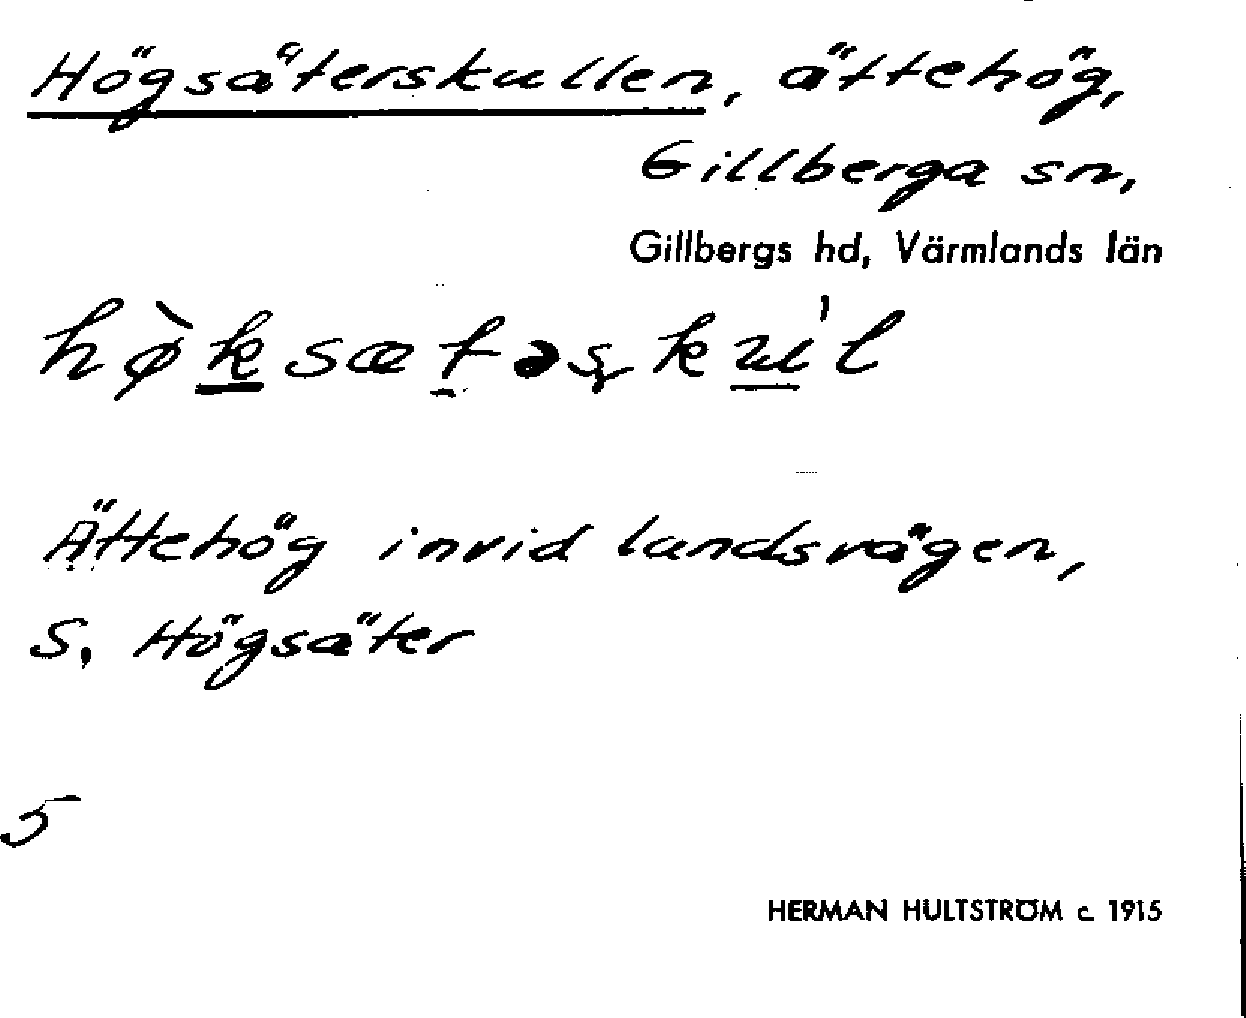 Högsäterskullen, ättehög,
Gillberga sn,
Gillbergs hd, Värmlands län
Ättehög invid landsvägen,
S. Högsäter
5
HERMAN HULTSTRÖM c. 1915